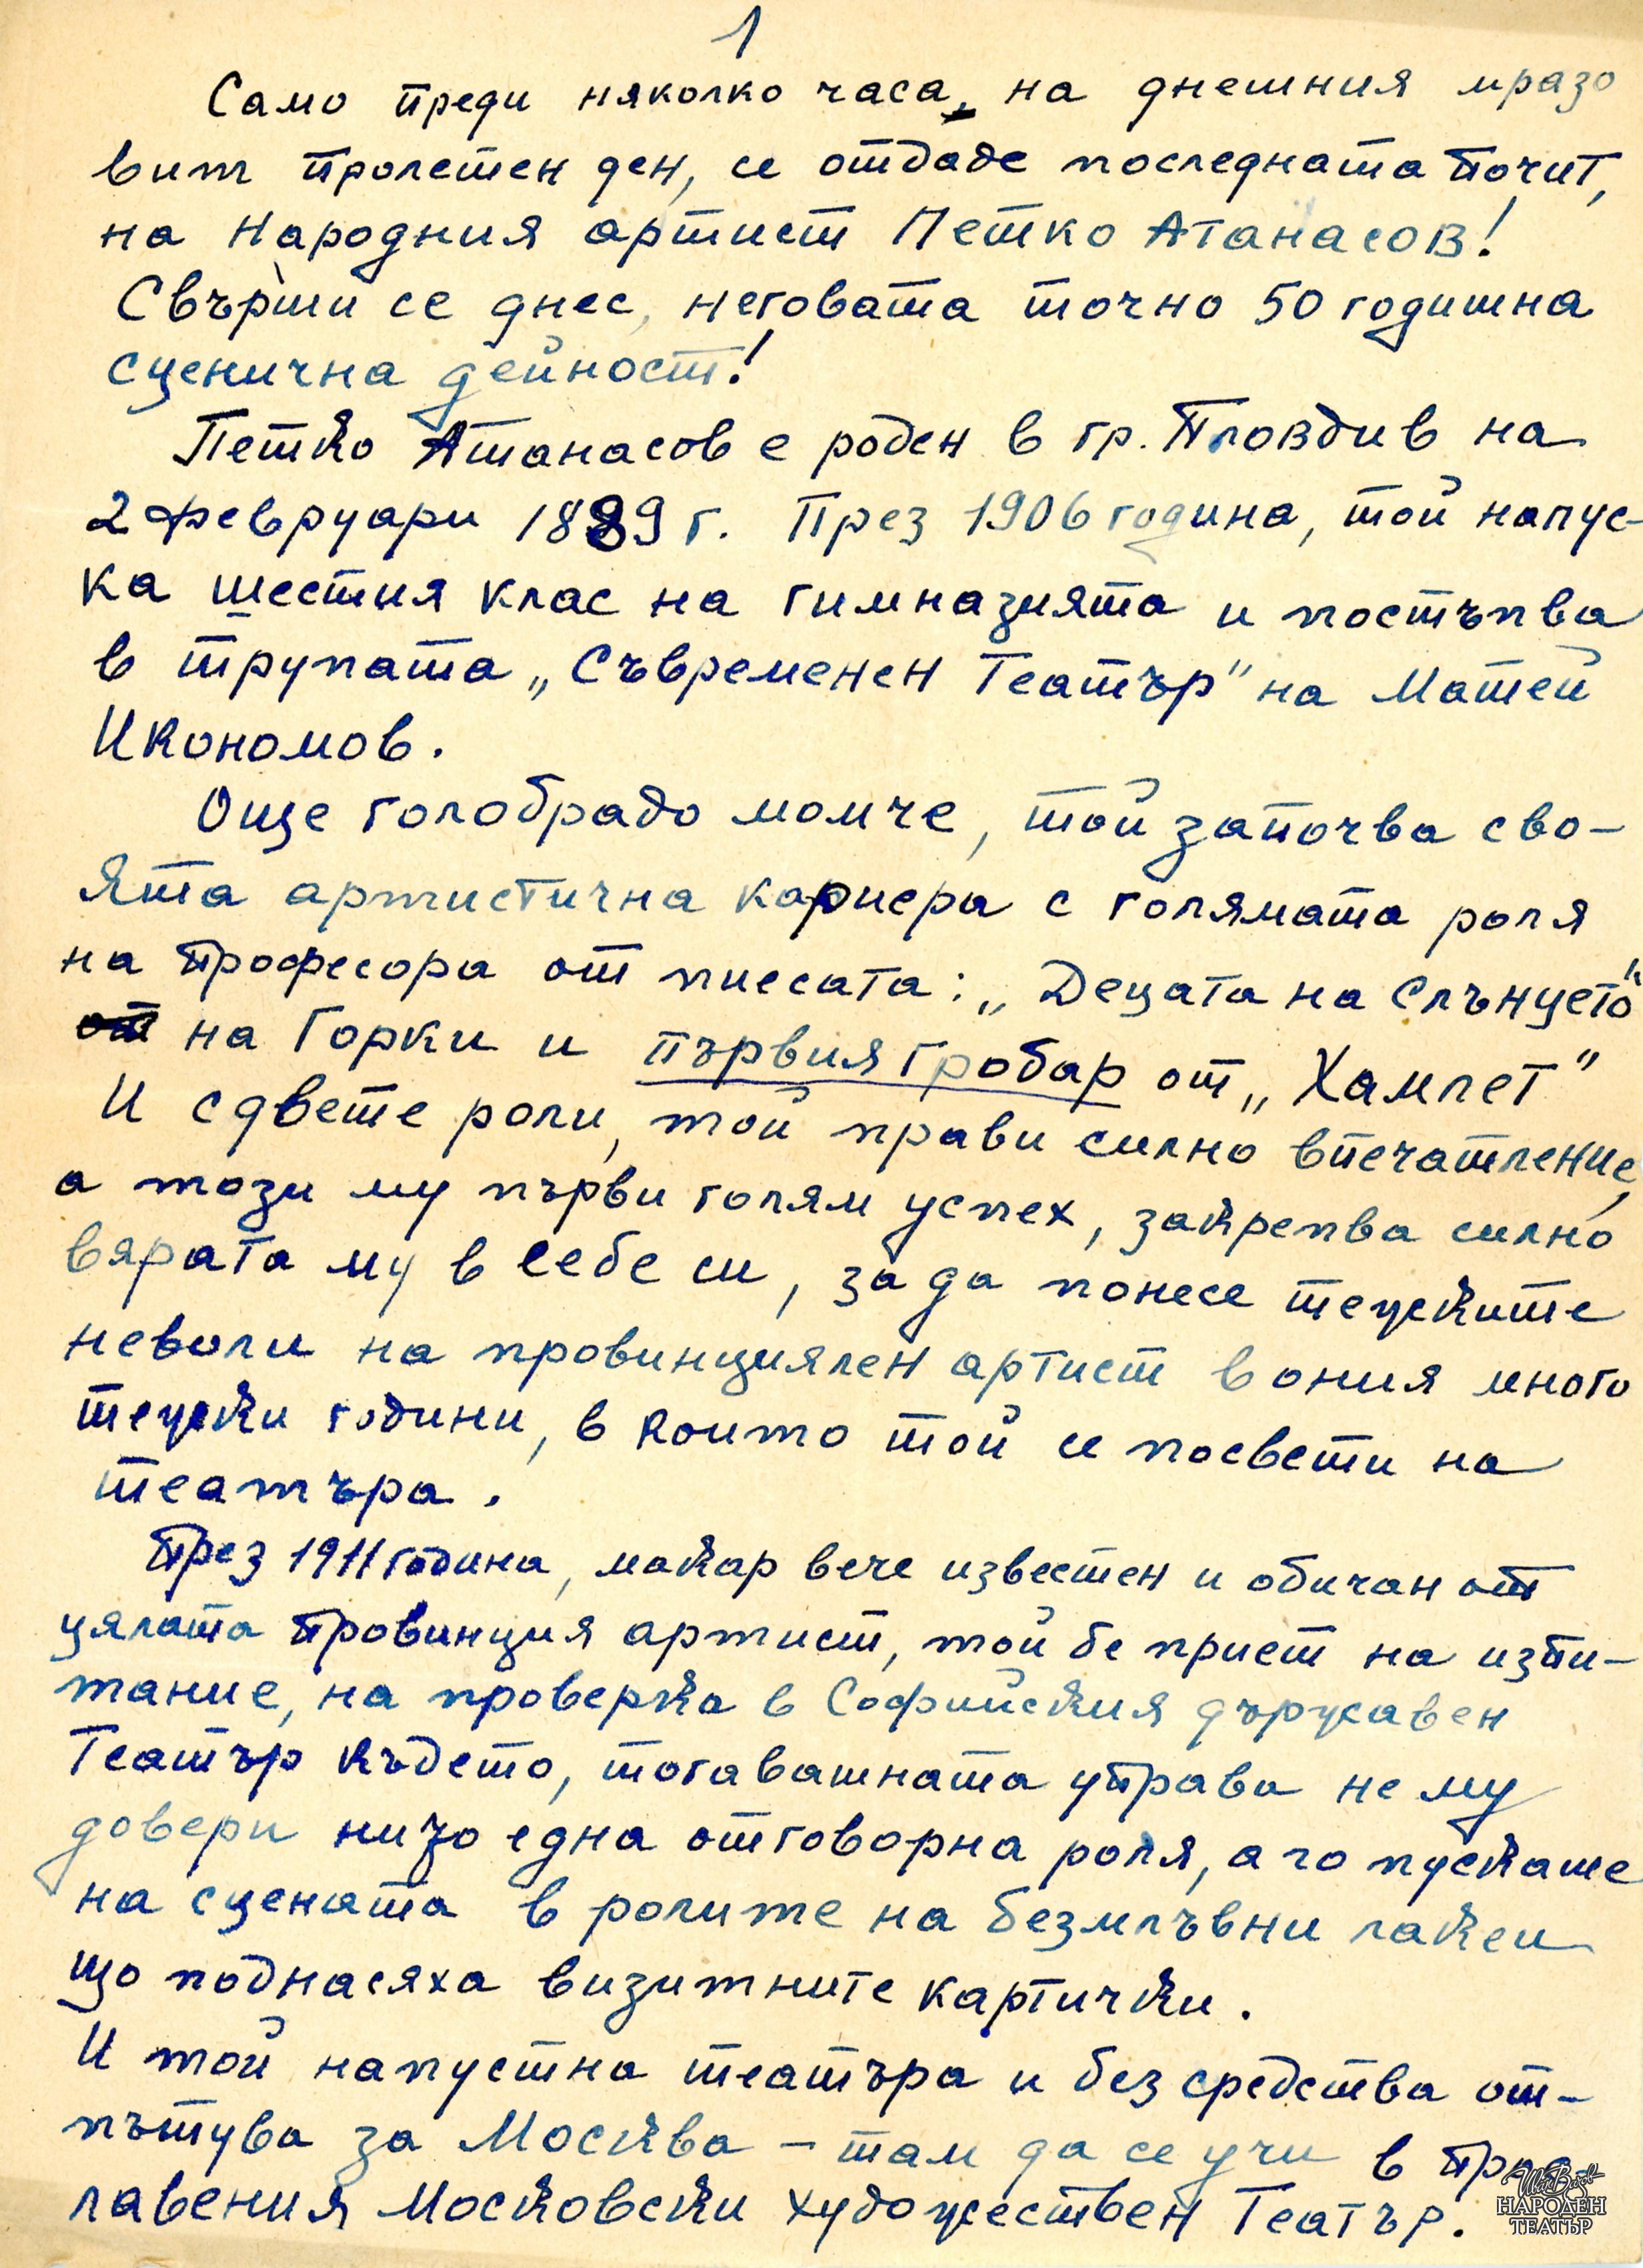 1
Само преди няколко часа, на днешния мразо
вит пролетен ден, се отдаде последната почит,
на Народния артист Петко Атанасов!
Свърши се днес, неговата точно 50 годишна
сценична дейност!
Петко Атанасов е роден в гр. Пловдив на
2 февруари 1889 г. През 1906 година, той напус-
ка шестия клас на гимназията и постъпва
в трупата „Съвременен Театър" на Матей
Икономов.
Още голобрадо момче, той започва сво-
ята артистична кариера с голямата роля
на професора от пиесата: „Децата на Слънцето"
от на Горки и първия гробар от „Хамлет"
И с двете роли, той прави силно впечатление,
а този му първи голям успех, закрепва силно
вярата му в себе си, за да понесе тежките
неволи на провинциялен артист в ония много
тежки години, в които той се посвети на
театъра.
През 1911 година, макар вече известен и обичан от
цялата провинция артист, той бе приет на изпи-
тание, на проверка в Софийския държавен
Театър където, тогавашната управа не му
довери нито една отговорна роля, а го пускаше
на сцената в ролите на безмлъвни лакеи
що поднасяха визитните картички.
И той напустна театъра и без средства от-
пътува за Москва – там да се учи в про-
лавения Московски художествен Театър.
Иван Вазов
НАРОДЕН
ТЕАТЪР